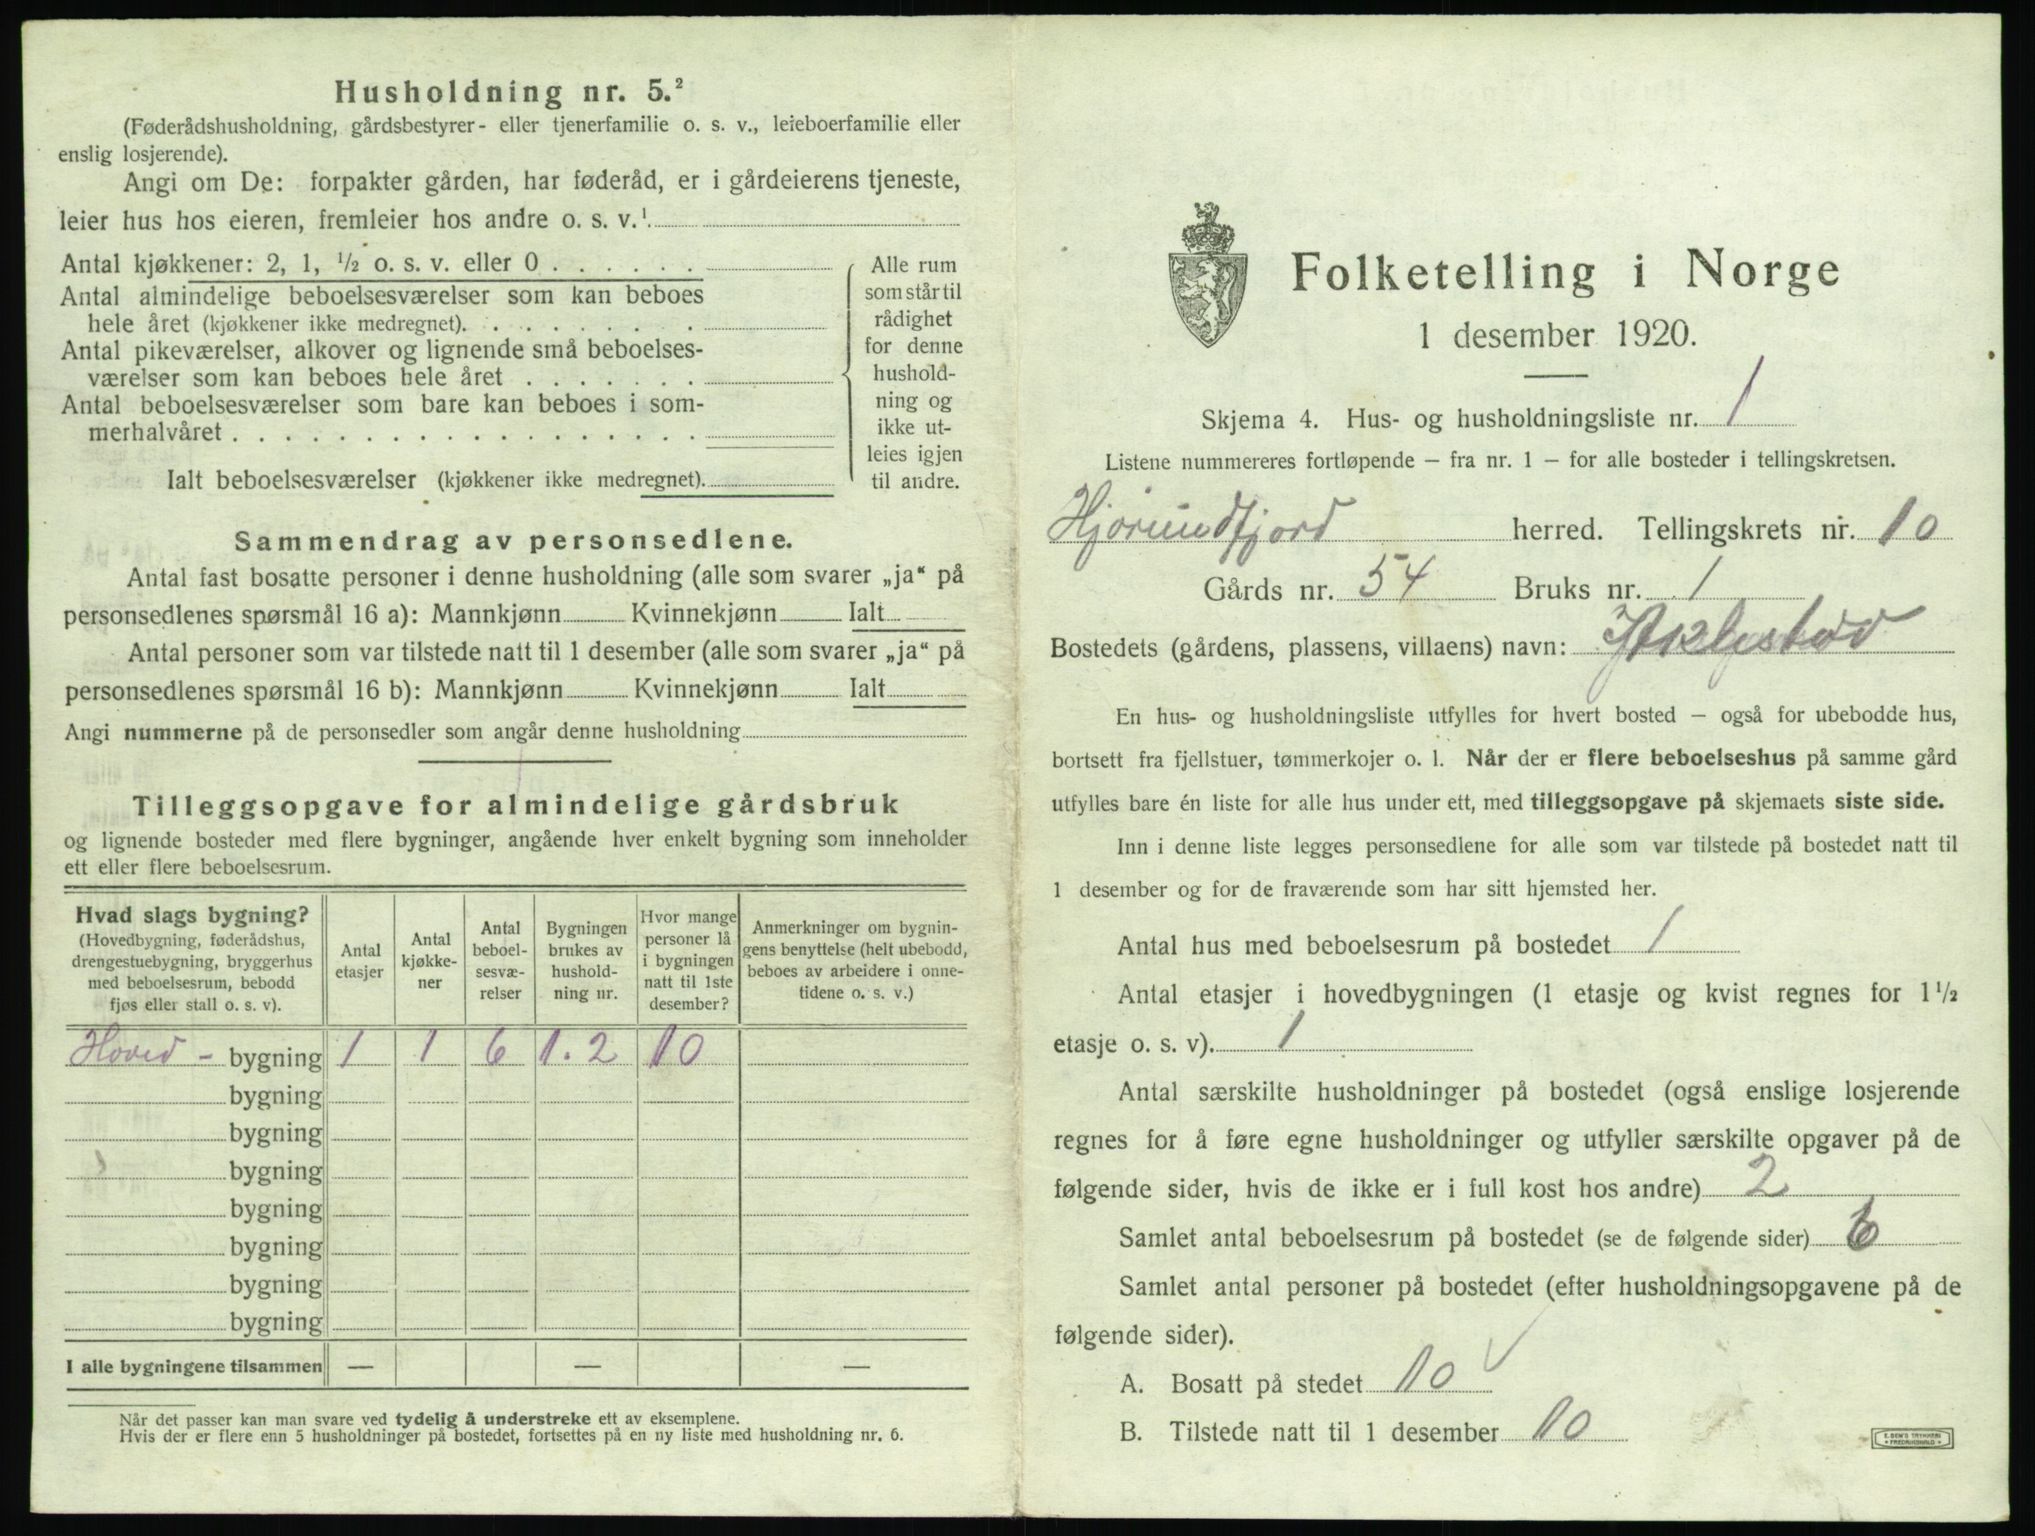 Husholdning nr. 5.²
(Føderådshusholdning, gårdsbestyrer- eller tjenerfamilie o. s. v., leieboerfamilie eller
enslig losjerende).
Angi om De: forpakter gården, har føderåd, er i gårdeierens tjeneste,
leier hus hos eieren, fremleier hos andre o. s. v.¹
Antal kjøkkener: 2, 1, ½ o. s. v. eller 0
Antal almindelige beboelsesværelser som kan beboes
hele året (kjøkkener ikke medregnet).
Antal pikeværelser, alkover og lignende små beboelses-
værelser som kan beboes hele året
Antal beboelsesværelser som bare kan beboes i som-
merhalvåret
Ialt beboelsesværelser (kjøkkener ikke medregnet).
Alle rum
som står til
rådighet
for denne
hushold-
ning og
ikke ut-
leies igjen
til andre.
Sammendrag av personsedlene.
Antal fast bosatte personer i denne husholdning (alle som svarer „ja“ på
personsedlenes spørsmål 16 a): Mannkjønn Kvinnekjønn Ialt
Antal personer som var tilstede natt til 1 desember (alle som svarer „ja“ på
personsedlenes spørsmål 16 b): Mannkjønn Kvinnekjønn Ialt
Angi nummerne på de personsedler som angår denne husholdning
Tilleggsopgave for almindelige gårdsbruk
og lignende bosteder med flere bygninger, angående hver enkelt bygning som inneholder
ett eller flere beboelsesrum.
Hvad slags bygning?
(Hovedbygning, føderådshus,
drengestuebygning, bryggerhus
med beboelsesrum, bebodd
fjøs eller stall o. s. v).
Antal
etasjer
Antal
kjøkke-
ner
Antal
beboel-
sesvæ-
relser
Bygningen
brukes av
hushold-
ning nr.
Hvor mange
personer lå
i bygningen
natt til 1ste
desember?
Anmerkninger om bygnin-
gens benyttelse (helt ubebodd,
beboes av arbeidere i onne-
tidene o. s. v.)
Hoved - bygning 1 1 6 1. 2 10
bygning
bygning
bygning
bygning
bygning
bygning
bygning
I alle bygningene tilsammen — — —
Når det passer kan man svare ved tydelig å understreke ett av eksemplene.
Hvis der er flere enn 5 husholdninger på bostedet, fortsettes på en ny liste med husholdning nr. 6.
Folketelling i Norge
1 desember 1920.
Skjema 4. Hus- og husholdningsliste nr. 1
Listene nummereres fortløpende – fra nr. 1 – for alle bosteder i tellingskretsen.
Hjørundfjord herred. Tellingskrets nr. 10
Gårds nr. 54 Bruks nr. 1
Bostedets (gårdens, plassens, villaens) navn:
En hus- og husholdningsliste utfylles for hvert bosted – også for ubebodde hus,
bortsett fra fjellstuer, tømmerkojer o. l. Når der er flere beboelseshus på samme gård
utfylles bare én liste for alle hus under ett, med tilleggsopgave på skjemaets siste side.
Inn i denne liste legges personsedlene for alle som var tilstede på bostedet natt til
1 desember og for de fraværende som har sitt hjemsted her.
Antal hus med beboelsesrum på bostedet 1
Antal etasjer i hovedbygningen (1 etasje og kvist regnes for 1½
etasje o. s. v). 1
Antal særskilte husholdninger på bostedet (også enslige losjerende
regnes for å føre egne husholdninger og utfyller særskilte opgaver på de
følgende sider, hvis de ikke er i full kost hos andre) 2
Samlet antal beboelsesrum på bostedet (se de følgende sider) 6
Samlet antal personer på bostedet (efter husholdningsopgavene på de
følgende sider).
A. Bosatt på stedet 10 ✓
B. Tilstede natt til 1 desember 10